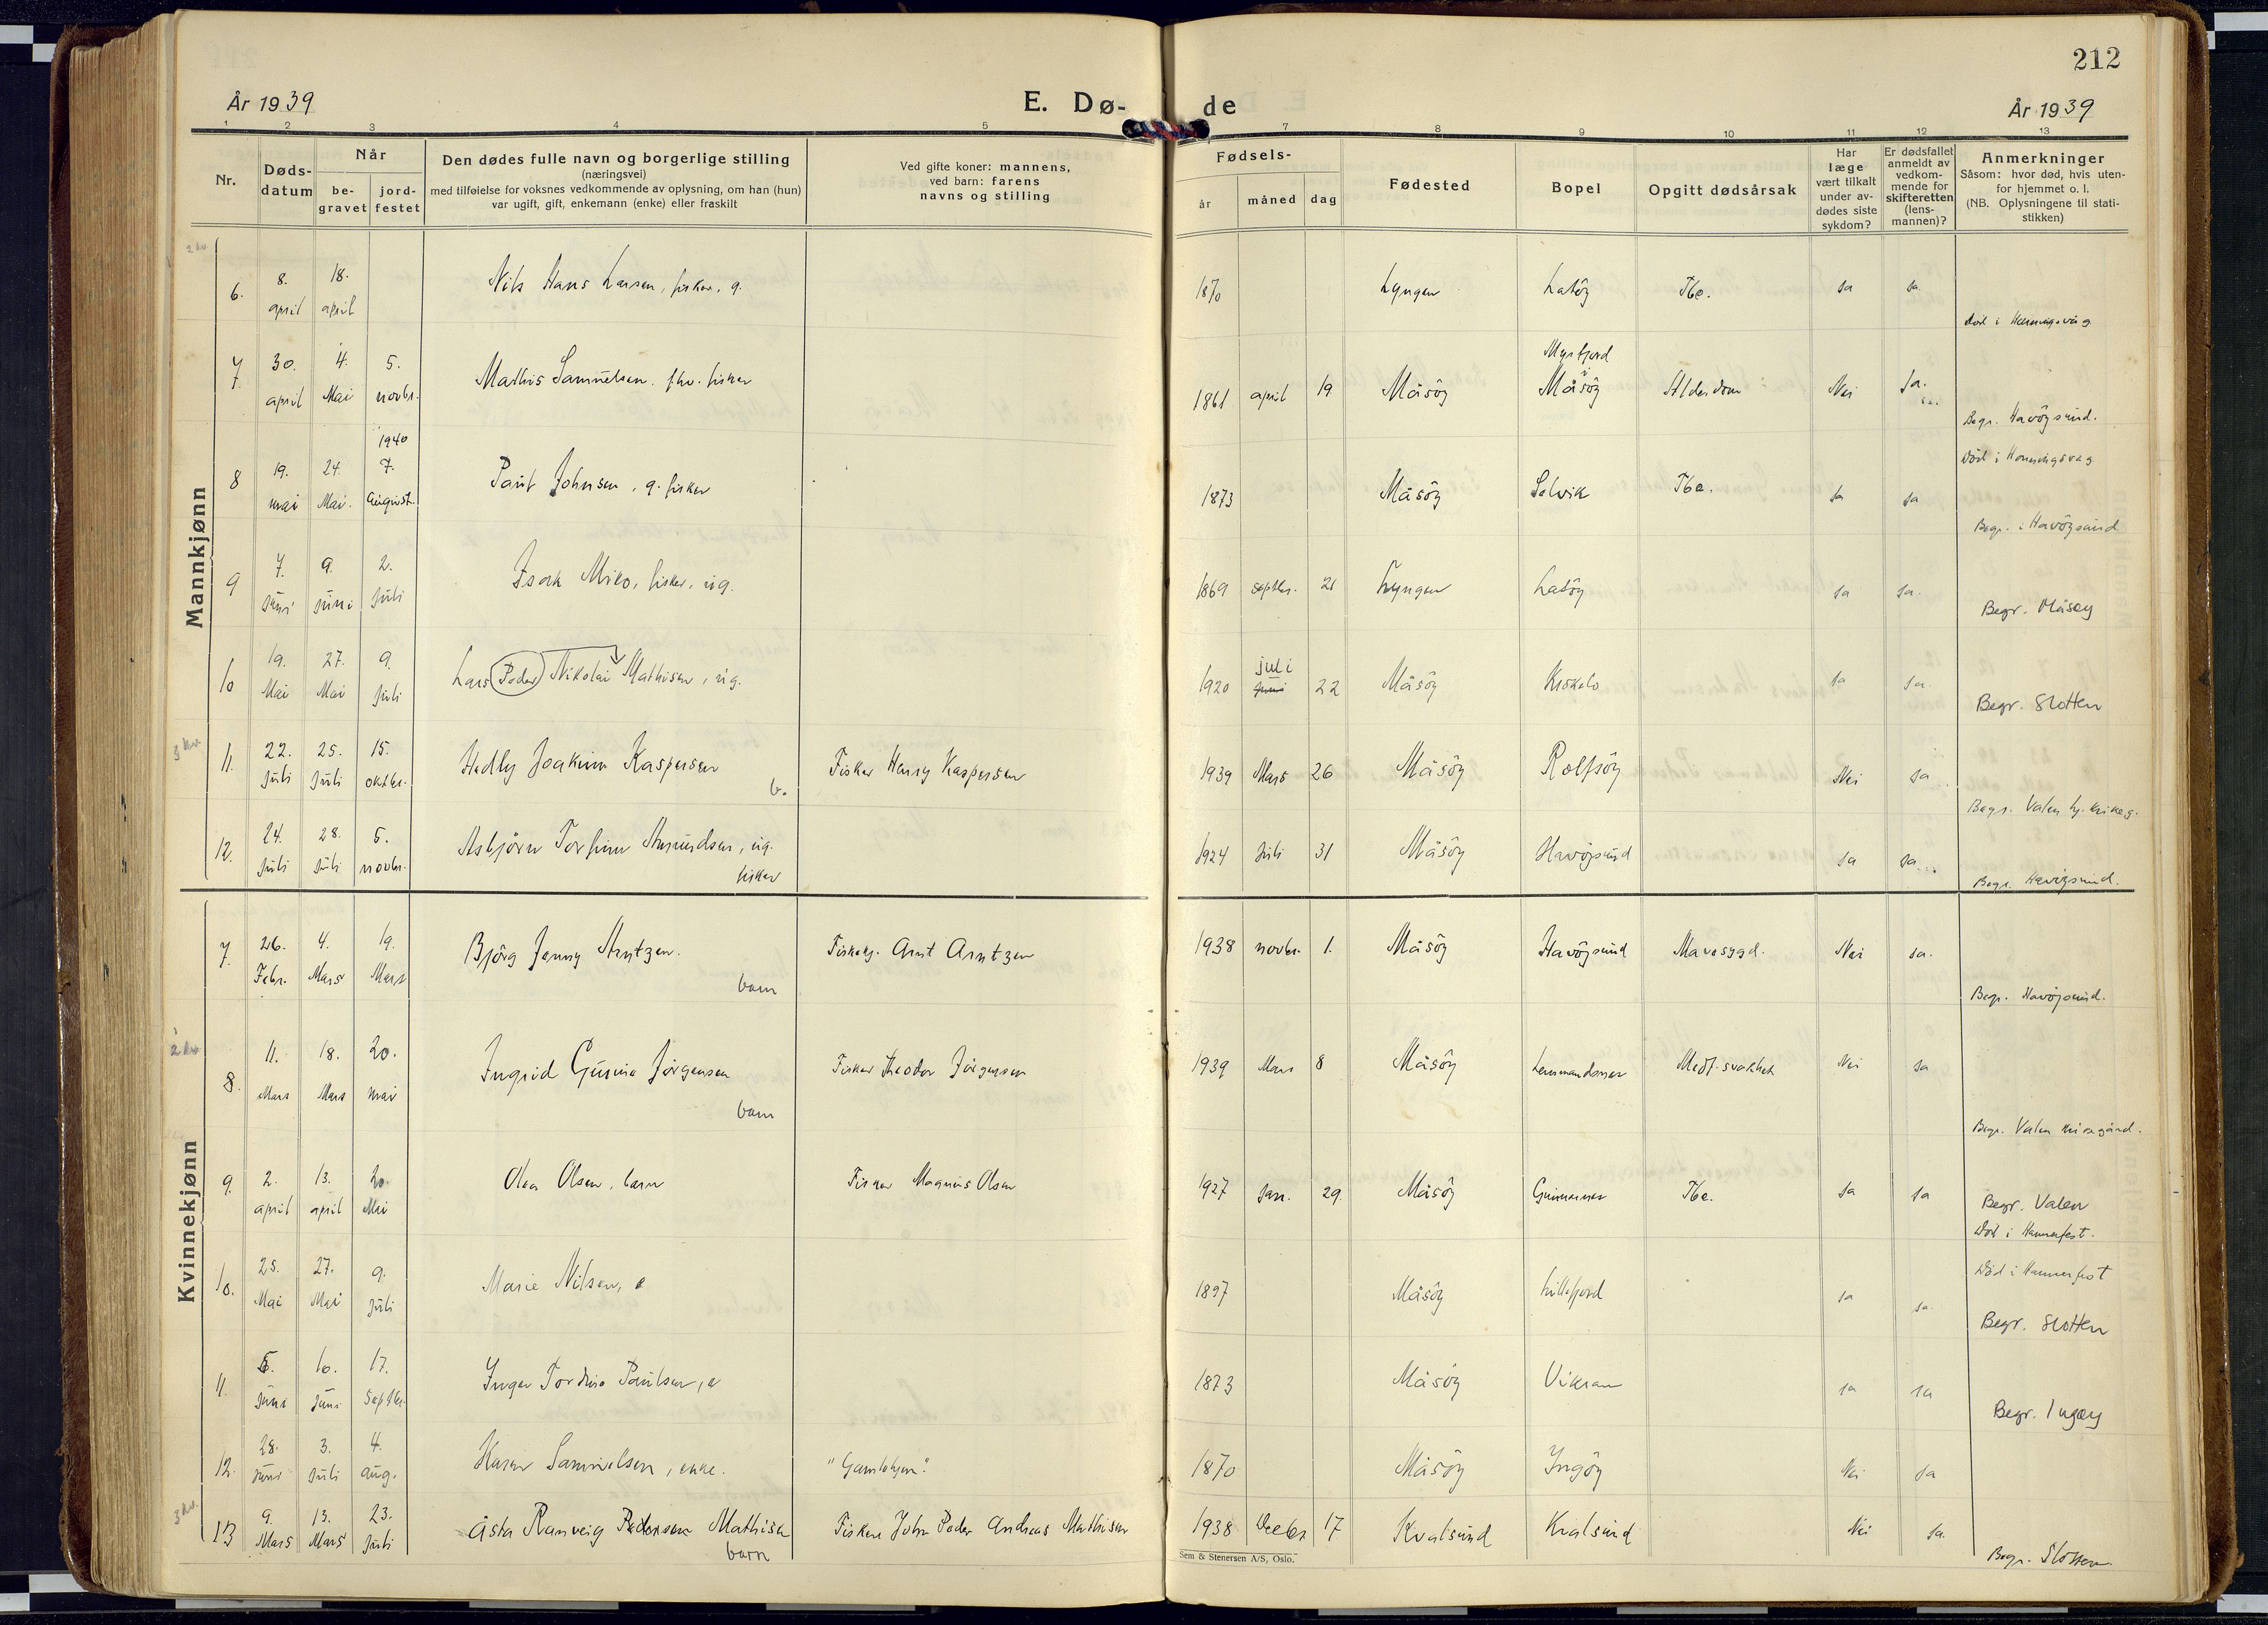 212
År 1939
E. Dø-
de
År 1939
1 2 3 4 5 7 8 9 10 11 12 13
Nr.
Døds-
datum
Når
be-
gravet
jord-
festet
Den dødes fulle navn og borgerlige stilling
(næringsvei)
med tilføielse for voksnes vedkommende av oplysning, om han (hun)
var ugift, gift, enkemann (enke) eller fraskilt
Ved gifte koner: mannens,
ved barn: farens
navns og stilling
Fødsels-
år
måned
dag
Fødested
Bopel
Opgitt dødsårsak
Har
læge
vært tilkalt
under av-
dødes siste
sykdom?
Er dødsfallet
anmeldt av
vedkom-
mende for
skifteretten
(lens-
mannen)?
Anmerkninger
Såsom: hvor død, hvis uten-
for hjemmet o. l.
(NB. Oplysningene til stati-
stikken)
Mannkjønn
6. 8. april 18. april Nils Hans Larsen, fisker, g. 1870 Lyngen Latöy Tbc. Ja Ja. Död i Honningsvåg
7. 30. april 4. Mai 5. novbr. Mathis Samuelsen. fhv. fisker 1861 april 19. Måsöy Myrfjord i Måsöy Alderdom Nei Ja. Begr. Havöysund.
8 19. mai 24. Mai. 1940 7. August. Paul Johnsen, g. fisker 1873 Måsöy Selvik Tbc. Ja Ja Död i Honningsvåg
Begr. i Havöysund
9 7. Juni 9. Juni 2. Juli Isak Miko, fisker, ug. 1869 septbr. 21 Lyngen Latöy Ja Ja. Begr. Måsøy
10 19. Mai 27. Mai 9. Juli Lars Peder Nikolai Mathisen, ug. 1920 juli Juni 22 Måsöy Kokelv Ja Ja. Begr. Slotten
11. 22. Juli 25. Juli 15. oktbr. Hedly Joakim Kaspersen b. Fisker Henry Kaspersen 1939 Mars 26 Måsöy Rolfsöy Nei Ja Begr. Valen
12. 24. Juli 28. Juli 5. novbr. Asbjörn Torfinn Amundsen, ug. fisker 1924 Juli 31 Måsöy Havöysund Ja Ja. Begr. Havöysund.
Kvinnekjønn
7. 26. Febr. 4. Mars 19. Mars Björg Jenny Arntzen. barn Arnt Arntzen 1938 novbr. 1. Måsöy Havöysund Mavesygd. Nei Ja. Begr. Havöysund.
8. 11. Mars 18. Mars 20. mai Ingrid Gunnie Jörgensen barn Fisker Theodor Jörgensen 1939 Mars 8 Måsöy Lensmandsnes Medf. svakhet Nei Ja Begr. Valen kirkegård.
9. 2. april 13. april 20. Mai Olea Olsen, barn Fisker Magnus Olsen 1927 Jan. 29. Måsöy Gunnarnes Tbc. Ja Ja Begr. Valen
Död i Hammerfest.
10. 25. Mai 27. Mai 9. Juli Marie Nilsen, e 1897 Måsöy Lillefjord Ja Ja. Död i Hammerfest
Begr. Slotten
11. 5. Juni 10. Juni 17. Septbr. Inger Tordine Paulsen, e 1873 Måsöy Vikran Ja Ja Begr. Ingøy
12. 28. Juni 3. Juli 4. aug. Karen Samuelsen, enke. "Gamlehjem". 1870 Måsöy Ingöy Nei Ja
13 9. Mars 13. Mars 23. Juli Åsta Ranveig Pedersen Mathisen barn Fisker John Peder Andreas Mathisen 1938 Decbr 17 Kvalsund Kvalsund Nei Ja. Begr. Slotten
Sem & Stenersen A/S, Oslo.